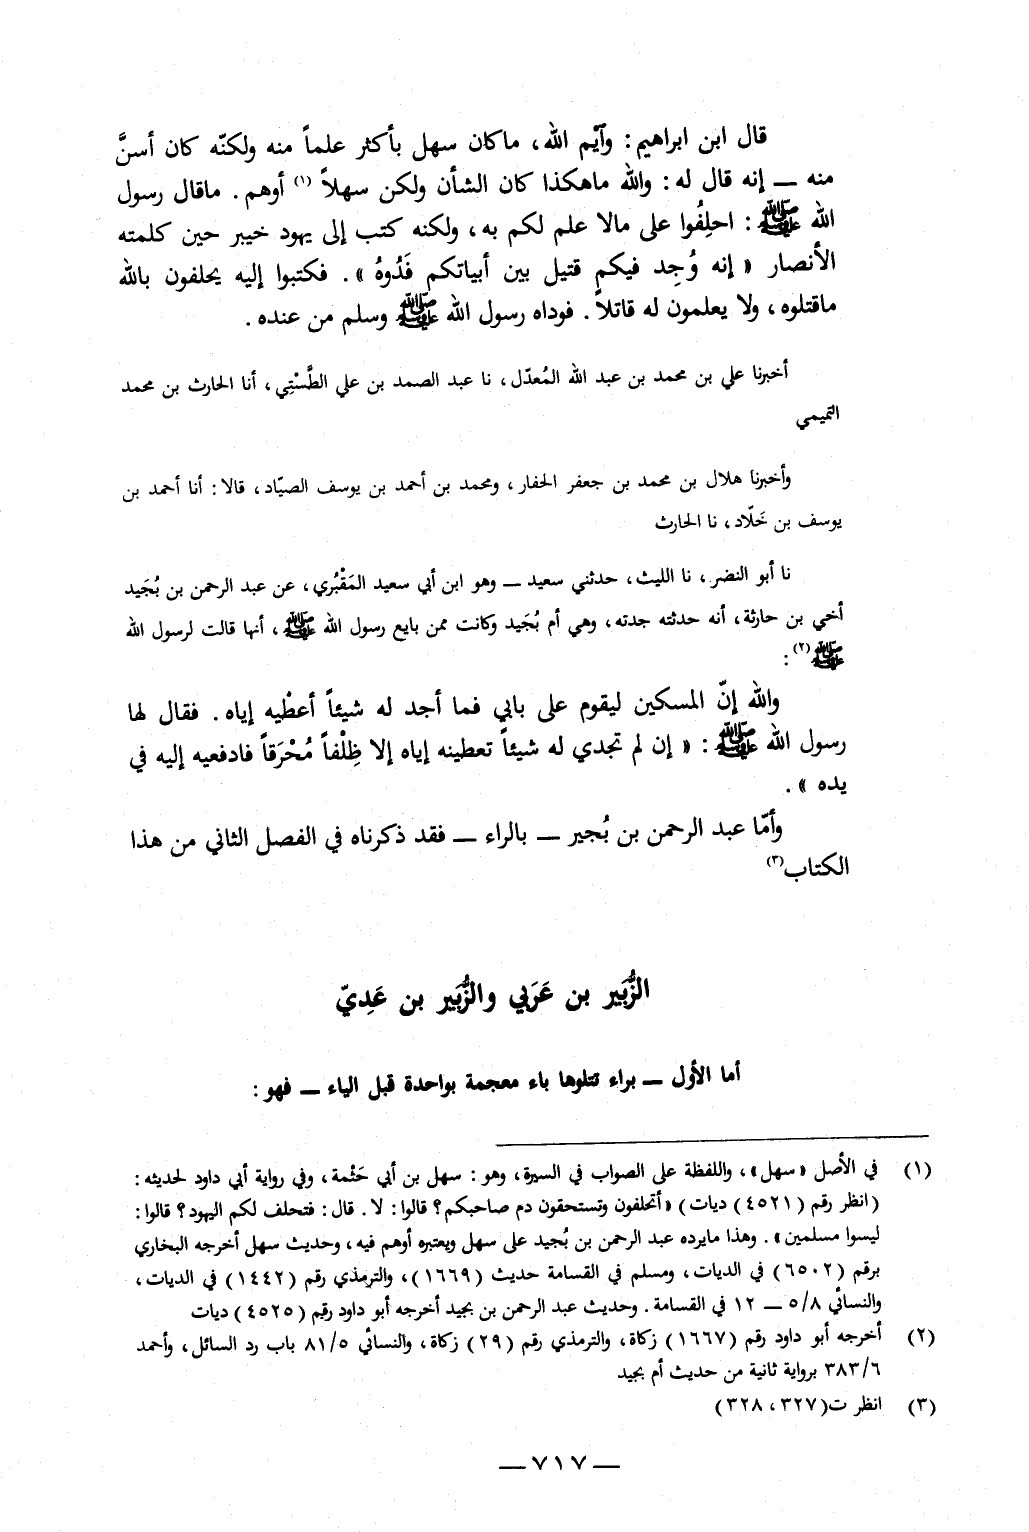 قال ابن ابراهيم : وآيْم الله ، ماكان سهل بأكثر علماً منه ولكنّه كان أسنَّ
منه ــ إنه قال له : والله ماهكذا كان الشأن ولكن سهلاً (١) أوهم . ماقال رسول
الله ﷺ : احلِفُوا على مالا علم لكم به ، ولكنه كتب إلى يهود خيبر حين كلمته
الأنصار « إنه وُجِد فيكم قتيل بين أبياتكم فَدُوهُ » . فكتبوا إليه يحلفون بالله
ماقتلوه ، ولا يعلمون له قاتلاً . فوداه رسول الله ﷺ وسلم من عنده .
أخبرنا علي بن محمد بن عبد الله المُعدّل ، نا عبد الصمد بن علي الطَّسْتِي ، أنا الحارث بن محمد
التميمي
وأخبرنا هلال بن محمد بن جعفر الحفار ، ومحمد بن أحمد بن يوسف الصيّاد ، قالا : أنا أحمد بن
يوسف بن خَلّاد ، نا الحارث
نا أبو النضر ، نا الليث ، حدثني سعيد ــ وهو ابن أبي سعيد المَقْبُري ، عن عبد الرحمن بن بُجَيد
أخي بن حارثة ، أنه حدثته جدته ، وهي أم بُجَيد وكانت ممن بايع رسول الله ﷺ ، أنها قالت لرسول الله
ﷺ (٢) :
والله إنّ المسكين ليقوم على بابي فما أجد له شيئاً أعطْيه إياه . فقال لها
رسول الله ﷺ : « إن لم تجدي له شيئاً تعطينه إياه إلا ظِلْفاً مُحْرَقاً فادفعيه إليه في
يده » .
وأمّا عبد الرحمن بن بُجير ــ بالراء ــ فقد ذكرناه في الفصل الثاني من هذا
الكتاب (٣)
الزُّبَير بن عَرَبي والزُّبَير بن عَدِيّ
أما الأول ــ براء تتلوها باء معجمة بواحدة قبل الياء ــ فهو :
(١) في الأصل « سهل » ، واللفظة على الصواب في السيرة ، وهو : سهل بن أبي حَثْمة ، وفي رواية أبي داود لحديثه :
(انظر رقم (٤٥٢١) ديات) « أتحلفون وتستحقون دم صاحبكم ؟ قالوا : لا . قال : فتحلف لكم اليهود ؟ قالوا :
ليسوا مسلمين » . وهذا مايرده عبد الرحمن بن بُجيد على سهل ويعتبره أوهم فيه ، وحديث سهل أخرجه البخاري
برقم (٦٥٠٢) في الديات ، ومسلم في القسامة حديث (١٦٦٩) ، والترمذي رقم (١٤٤٢) في الديات ،
والنسائي ٥/٨ ــ ١٢ في القسامة . وحديث عبد الرحمن بن بجيد أخرجه أبو داود رقم (٤٥٢٥) ديات
(٢) أخرجه أبو داود رقم (١٦٦٧) زكاة ، والترمذي رقم (٢٩) زكاة ، والنسائي ٨١/٥ باب رد السائل ، وأحمد
٣٨٣/٦ برواية ثانية من حديث أم بجيد
(٣) انظر ت (٣٢٧ ، ٣٢٨)
ــ ٧١٧ ــ